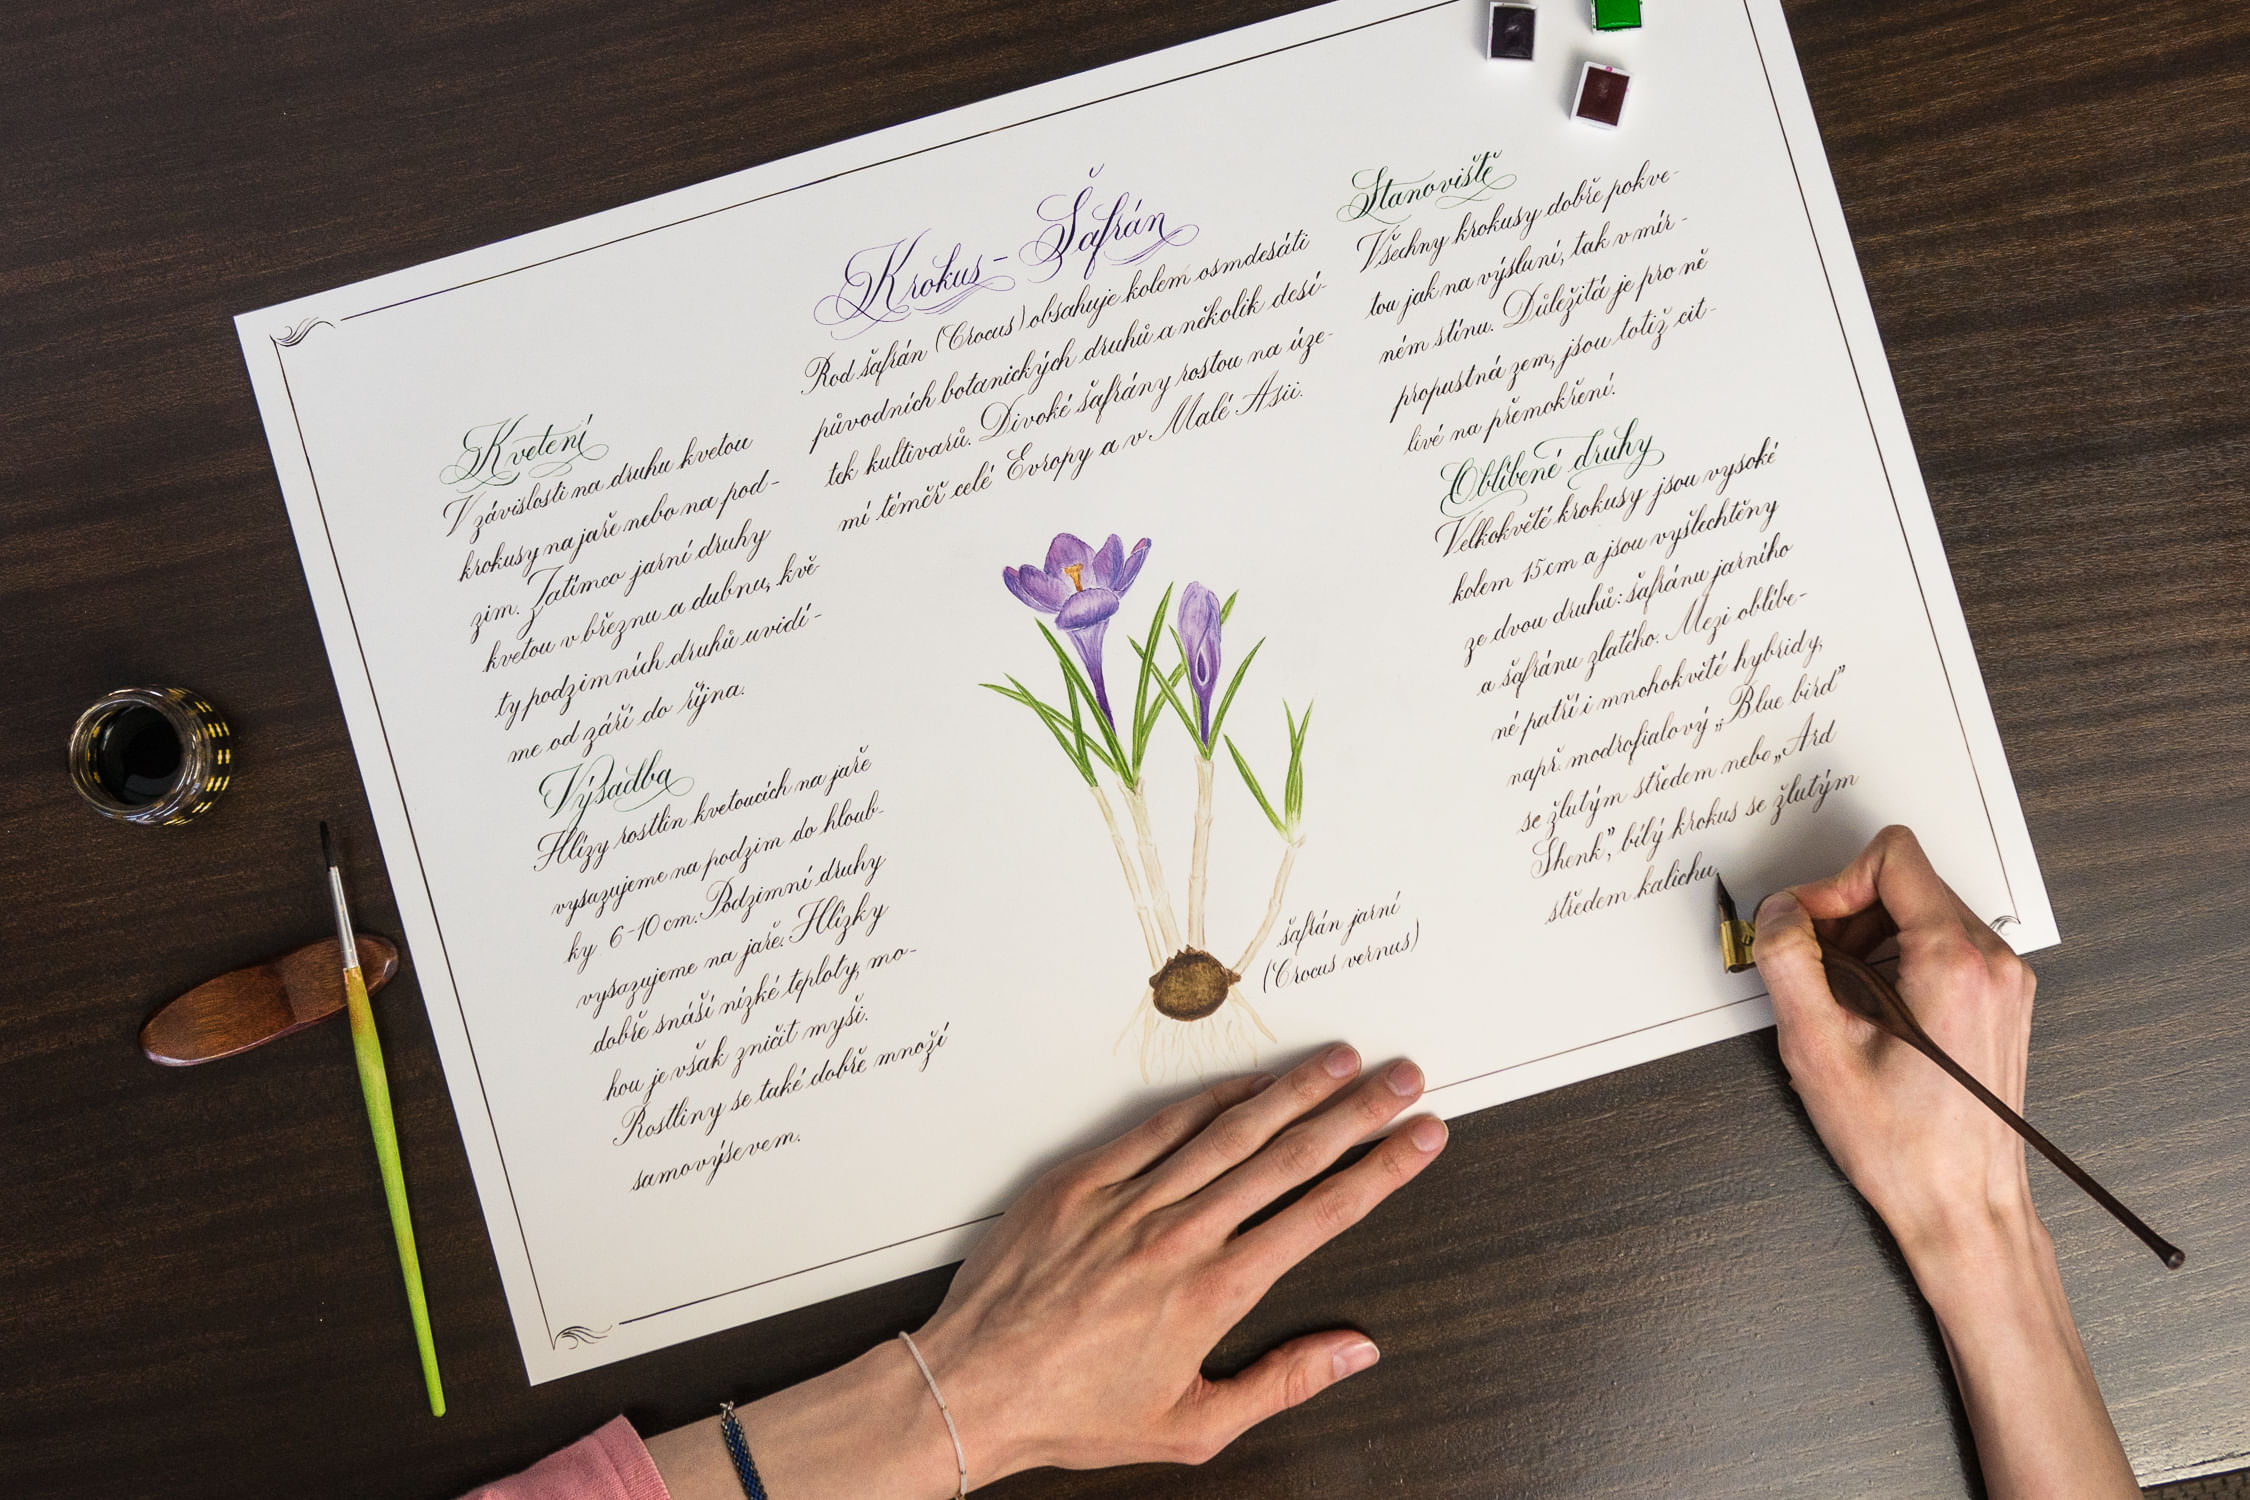 Krokus - Šafrán
Rod šafrán (Crocus) obsahuje kolem osmdesáti
původních botanických druhů a několik desí-
tek kultivarů. Divoké šafrány rostou na úze-
mí téměř celé Evropy a v Malé Asii.
Kvetení
V závislosti na druhu kvetou
krokusy na jaře nebo na pod-
zim. Zatímco jarní druhy
kvetou v březnu a dubnu, kvě-
ty podzimních druhů uvidí-
me od září do října.
Výsadba
Hlízy rostlin kvetoucích na jaře
vysazujeme na podzim do hloub-
ky 6-10 cm. Podzimní druhy
vysazujeme na jaře. Hlízky
dobře snáší nízké teploty, mo-
hou je však zničit myši.
Rostliny se také dobře množí
samovýsevem.
šafrán jarní
(Crocus vernus)
Stanoviště
Všechny krokusy dobře pokve-
tou jak na výsluní, tak v mír-
ném stínu. Důležitá je pro ně
propustná zem, jsou totiž cit-
livé na přemokření.
Oblíbené druhy
Velkokvěté krokusy jsou vysoké
kolem 15 cm a jsou vyšlechtěny
ze dvou druhů: šafránu jarního
a šafránu zlatého. Mezi oblíbe-
né patří i mnohokvěté hybridy,
např. modrofialový „Blue bird”
se žlutým středem nebo „Ard
Shenk”, bílý krokus se žlutým
středem kalichu.